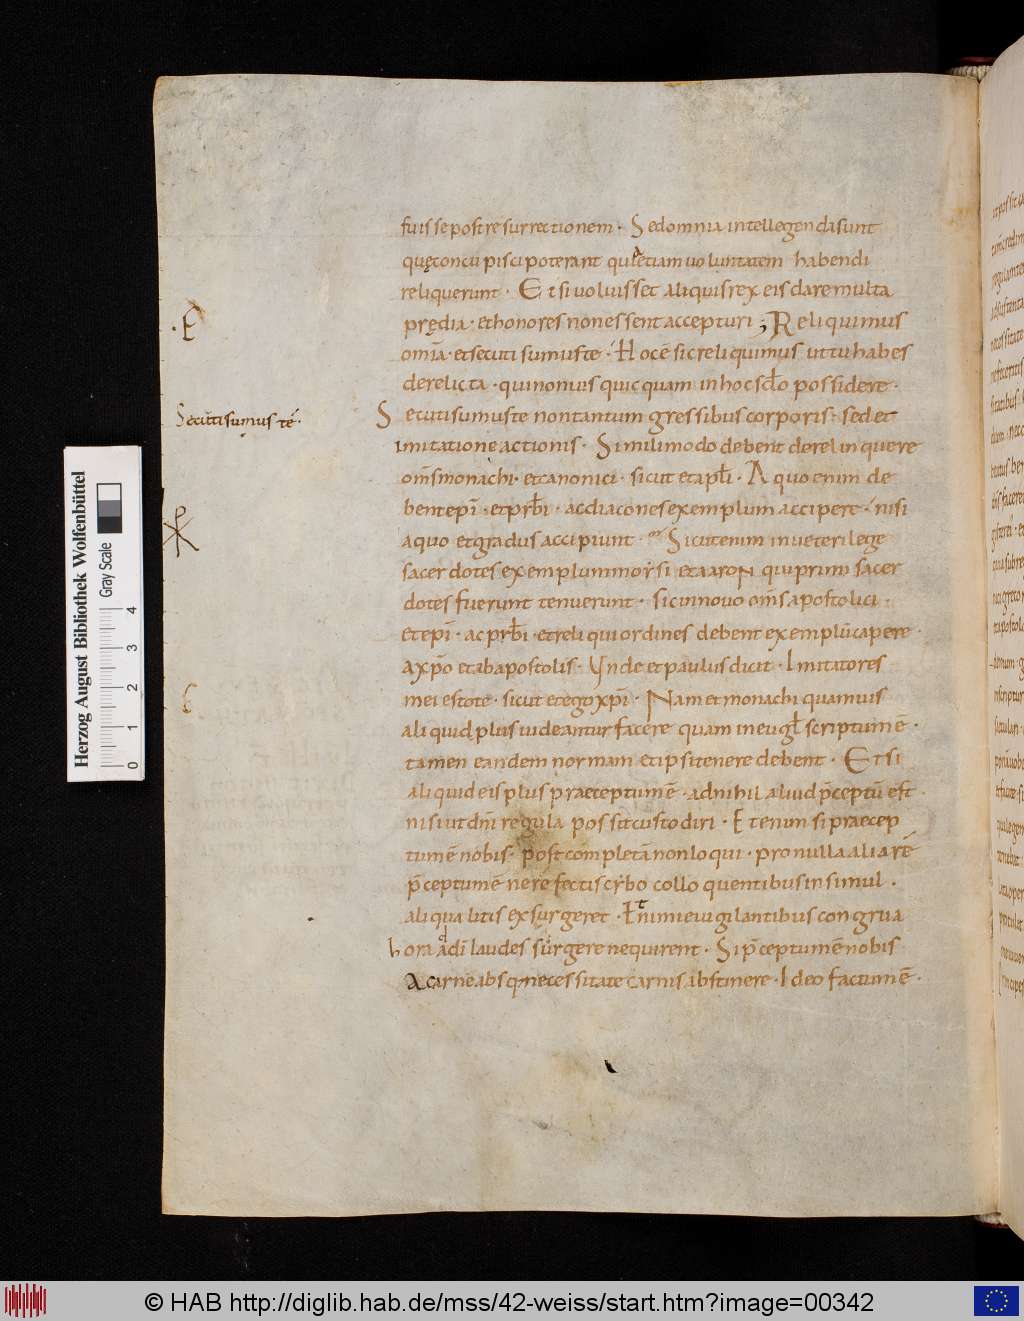 fuisse post resurrectionem · Sed omnia intellegenda sunt
quę concupisci poterant quia etiam voluntatem habendi
reliquerunt · Et si voluisset aliquis rex eis dare multa
prędia · et honores non essent accepturi ; Reliquimus
om̄ia · et secuti sumus te · Hoc ē sic reliquimus ut tu habes
derelicta · qui nomus quicquam in hoc sclo possidere ·
Secuti sumus te·
Secuti sumus te non tantum gressibus corporis · sed et
imitatione actionis · Simili modo debent derelinquere
om̄s monachi · et canonici · sicut et apłi · A quo enim de
bent epi · et prbi · ac diacones exemplum accipere · nisi
a quo et gradus accipiunt · Sicut enim in veteri lege
sacerdotes exemplum morsi et aaron qui primi sacer
dotes fuerunt tenuerunt · sic in novo om̄s apostolici ·
et epi · ac prbi · et reliqui ordines debent exemplū capere
a xpo et ab apostolis · Unde et paulus dicit · Imitatores
mei estote · sicut et ego xpi · Nam et monachi quamvis
aliquid plus videantur facere quam in evgł scriptum ē ·
tamen eandem normam et ipsi tenere debent · Et si
aliquid eis plus praeceptum ē · ad nihil aliud p̄ceptū est
nisi ut dn̄i regula possit custodiri · Etenim si praecep
tum ē nobis · post completā non loqui · pro nulla alia re
p̄ceptum ē nere fectis crbo colloquentibus in simul ·
aliqua litis exsurgeret · Et nimie vigilantibus congrua
hora ad dī laudes surgere nequirent · Si p̄ceptum ē nobis
A carne absq; necessitate carnis abstinere · Ideo factum ē ·
Herzog August Bibliothek Wolfenbüttel
Gray Scale
0 1 2 3 4
© HAB http://diglib.hab.de/mss/42-weiss/start.htm?image=00342